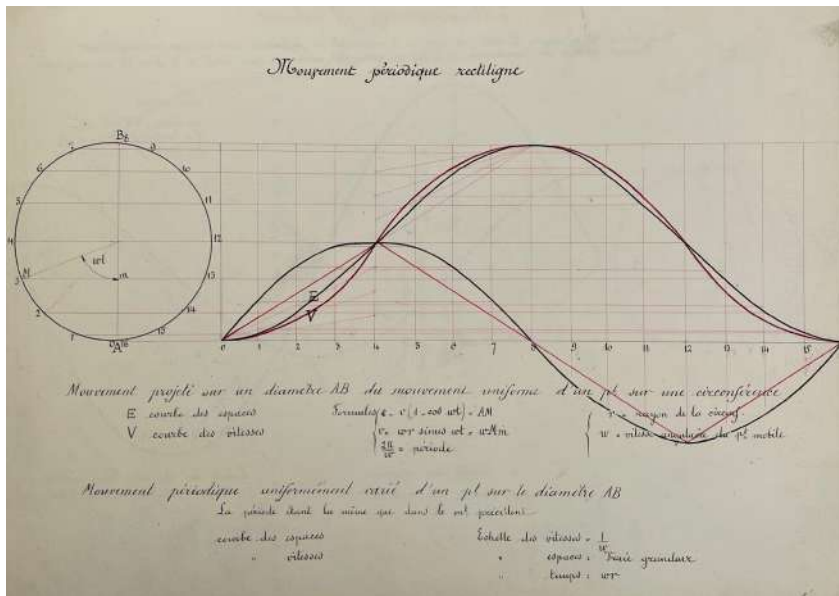 Mouvement périodique rectiligne
B8
7 9
6 10
5 11
4 12
M
3 13
wt
m
2 14
1 15
A 16
E
V
0 1 2 3 4 5 6 7 8 9 10 11 12 13 14 15
Mouvement projeté sur un diamètre AB du mouvement uniforme d'un pt sur une circonférence
E courbe des espaces
V courbe des vitesses
Formules e = r (1 - cos wt) = AM
v = wr sinus wt = wMm
2π/w = période
r = rayon de la circonf.
w = vitesse angulaire du pt mobile
Mouvement périodique uniformément varié d'un pt sur le diamètre AB
La période étant la même que dans le mt précédent
courbe des espaces
" vitesses
Echelle des vitesses = 1/w
" espaces = Vraie grandeur
" temps = wr